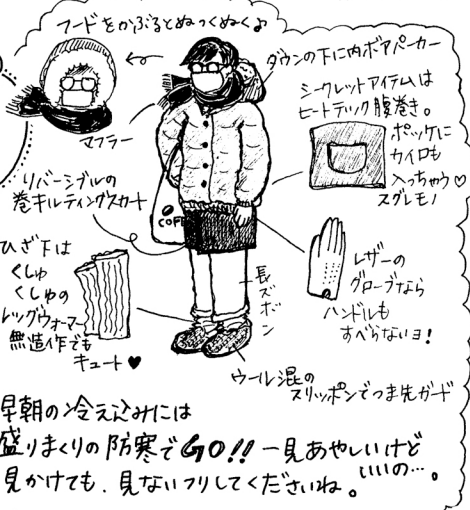 フードをかぶるとぬっくぬく♪
ダウンの下に内ボアパーカー
シークレットアイテムは
ヒートテック腹巻き。
ポッケに
カイロも
入っちゃう♡
スグレモノ
マフラー
リバーシブルの
巻キルティングスカート
COFF
ひざ下は
くしゅ
くしゅの
レッグウォーマー
無造作でも
キュート♥
長ズボン
レザーの
グローブなら
ハンドルも
すべらないヨ!
ウール混の
スリッポンでつま先ガード
早朝の冷え込みには
盛りまくりの防寒でGO!! 一見あやしいけど
いいの…。
見かけても、見ないフリしてくださいね。